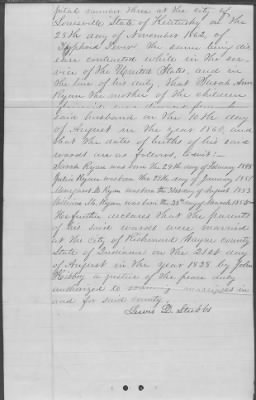 pital number three at the city of
Louisville State of Kentucky on the
28th day of November 1862, of
Typhoid Fever the same being dis
ease contracted while in the ser
vice of the United States, and in
the line of his duty, That Sarah Ann
Ryan the mother of the children
was divorced from her
said husband on the 10th day
of August in the year 1860, and
that the dates of births of his said
wards are as follows, to wit:-
Sarah Ryan was born the 29th day of February 1848
Julia Ryan was born the 27th day of January 1851
Margaret A. Ryan was born the day of August 1853
William M. Ryan was born the 28th day of March 1855
He further declares that the parents
of his said wards were married
at the city of Richmond Wayne county
State of Indiana on the 21st day
of August in the year 1838 by John
a justice of the peace duly
authorized to marriages in
and for said county.
Lewis D. Stubbs